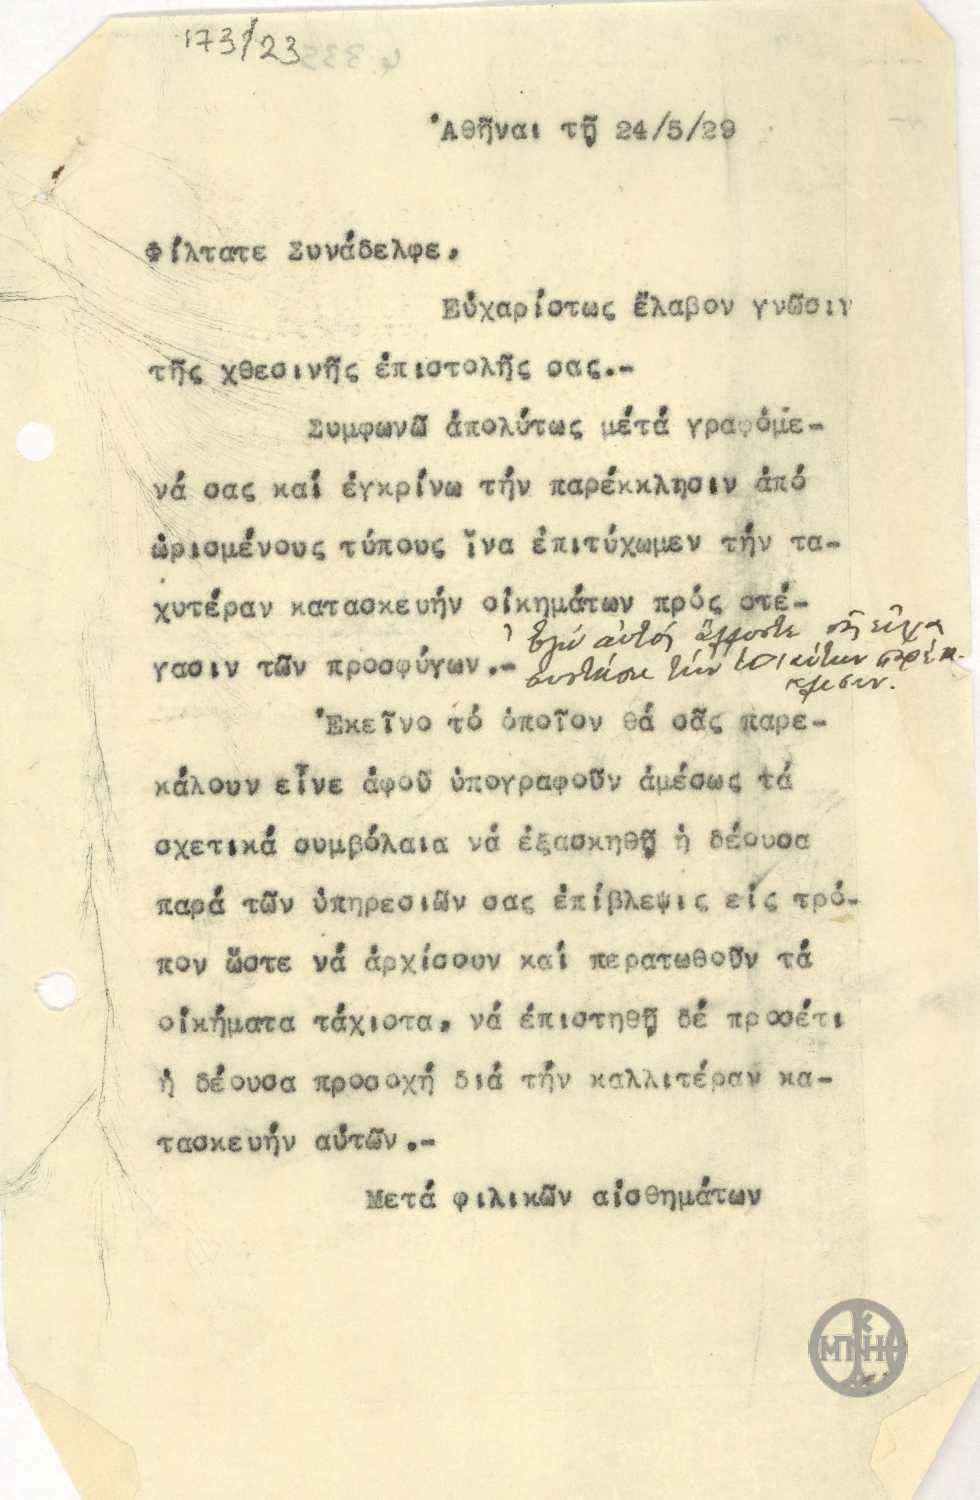 173/23
Ἀθῆναι τῇ 24/5/29
Φίλτατε Συνάδελφε,
Εὐχαρίστως ἔλαβον γνῶσιν
τῆς χθεσινῆς ἐπιστολῆς σας.-
Συμφωνῶ ἀπολύτως μέτά γραφόμε-
νά σας καί ἐγκρίνω τήν παρέκκλησιν ἀπό
ὡρισμένους τύπους ἵνα ἐπιτύχωμεν τήν τα-
χυτέραν κατασκευήν οἰκημάτων πρός στέ-
γασιν τῶν προσφύγων.-
Ἐγώ αὐτός ἄλλωστε σᾶς εἶχα
συστήσει τήν τοιαύτην παρέκ-
κλισιν.
Ἐκεῖνο τό ὁποῖον θά σᾶς παρε-
κάλουν εἶνε ἀφοῦ ὑπογραφοῦν ἀμέσως τά
σχετικά συμβόλαια νά ἐξασκηθῇ ἡ δέουσα
παρά τῶν ὑπηρεσιῶν σας ἐπίβλεψις είς τρό-
πον ὥστε νά ἀρχίσουν καί περατωθοῦν τά
οἰκήματα τάχιστα, νά ἐπιστηθῇ δέ προσέτι
ἡ δέουσα προσοχή διά τήν καλλιτέραν κα-
τασκευήν αὐτῶν.-
Μετά φιλικῶν αἰσθημάτων
ΜΝΗ